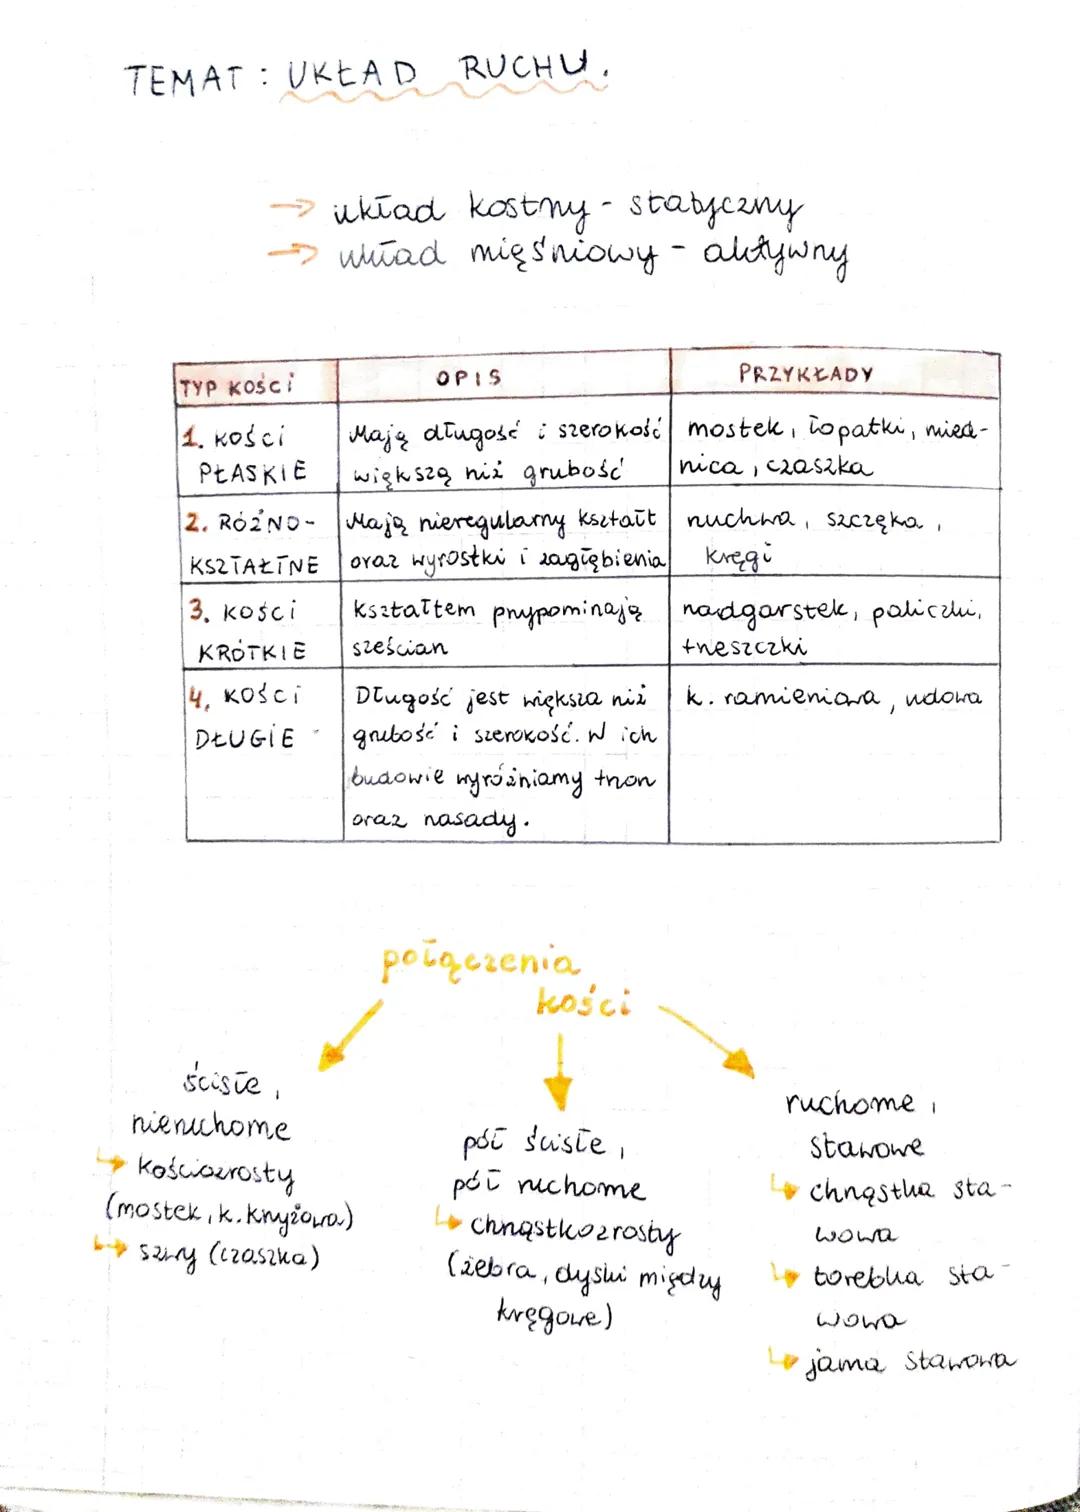 TEMAT: UKŁAD RUCHU.
→ układ kostny - statyczny
→ układ mięśniowy - aktywny
TYP KOŚCI
OPIS
PRZYKŁADY
1. KOŚCI
PŁASKIE
Mają długość i szerokość
większą niż grubość
mostek, łopatki, mied-
nica, czaszka
2. RÓŻNO-
KSZTAŁTNE
Mają nieregularny kształt
oraz wyrostki i zagłębienia
żuchwa, szczęka,
kręgi
3. KOŚCI
KRÓTKIE
Kształtem przypominają
sześcian
nadgarstek, paliczki,
trzeszczki
4. KOŚCI
DŁUGIE
Długość jest większa niż
grubość i szerokość. W ich
budowie wyróżniamy trzon
oraz nasady.
k. ramieniowa, udowa
połączenia
kości
ścisłe,
nieruchome
↳ kościozrosty
(mostek, k. krzyżowa)
↳ szwy (czaszka)
pół ścisłe,
pół ruchome
↳ chrząstkozrosty
(żebra, dyski między
kręgowe)
ruchome,
stawowe
↳ chrząstka sta-
wowa
↳ torebka sta-
wowa
↳ jama stawowa